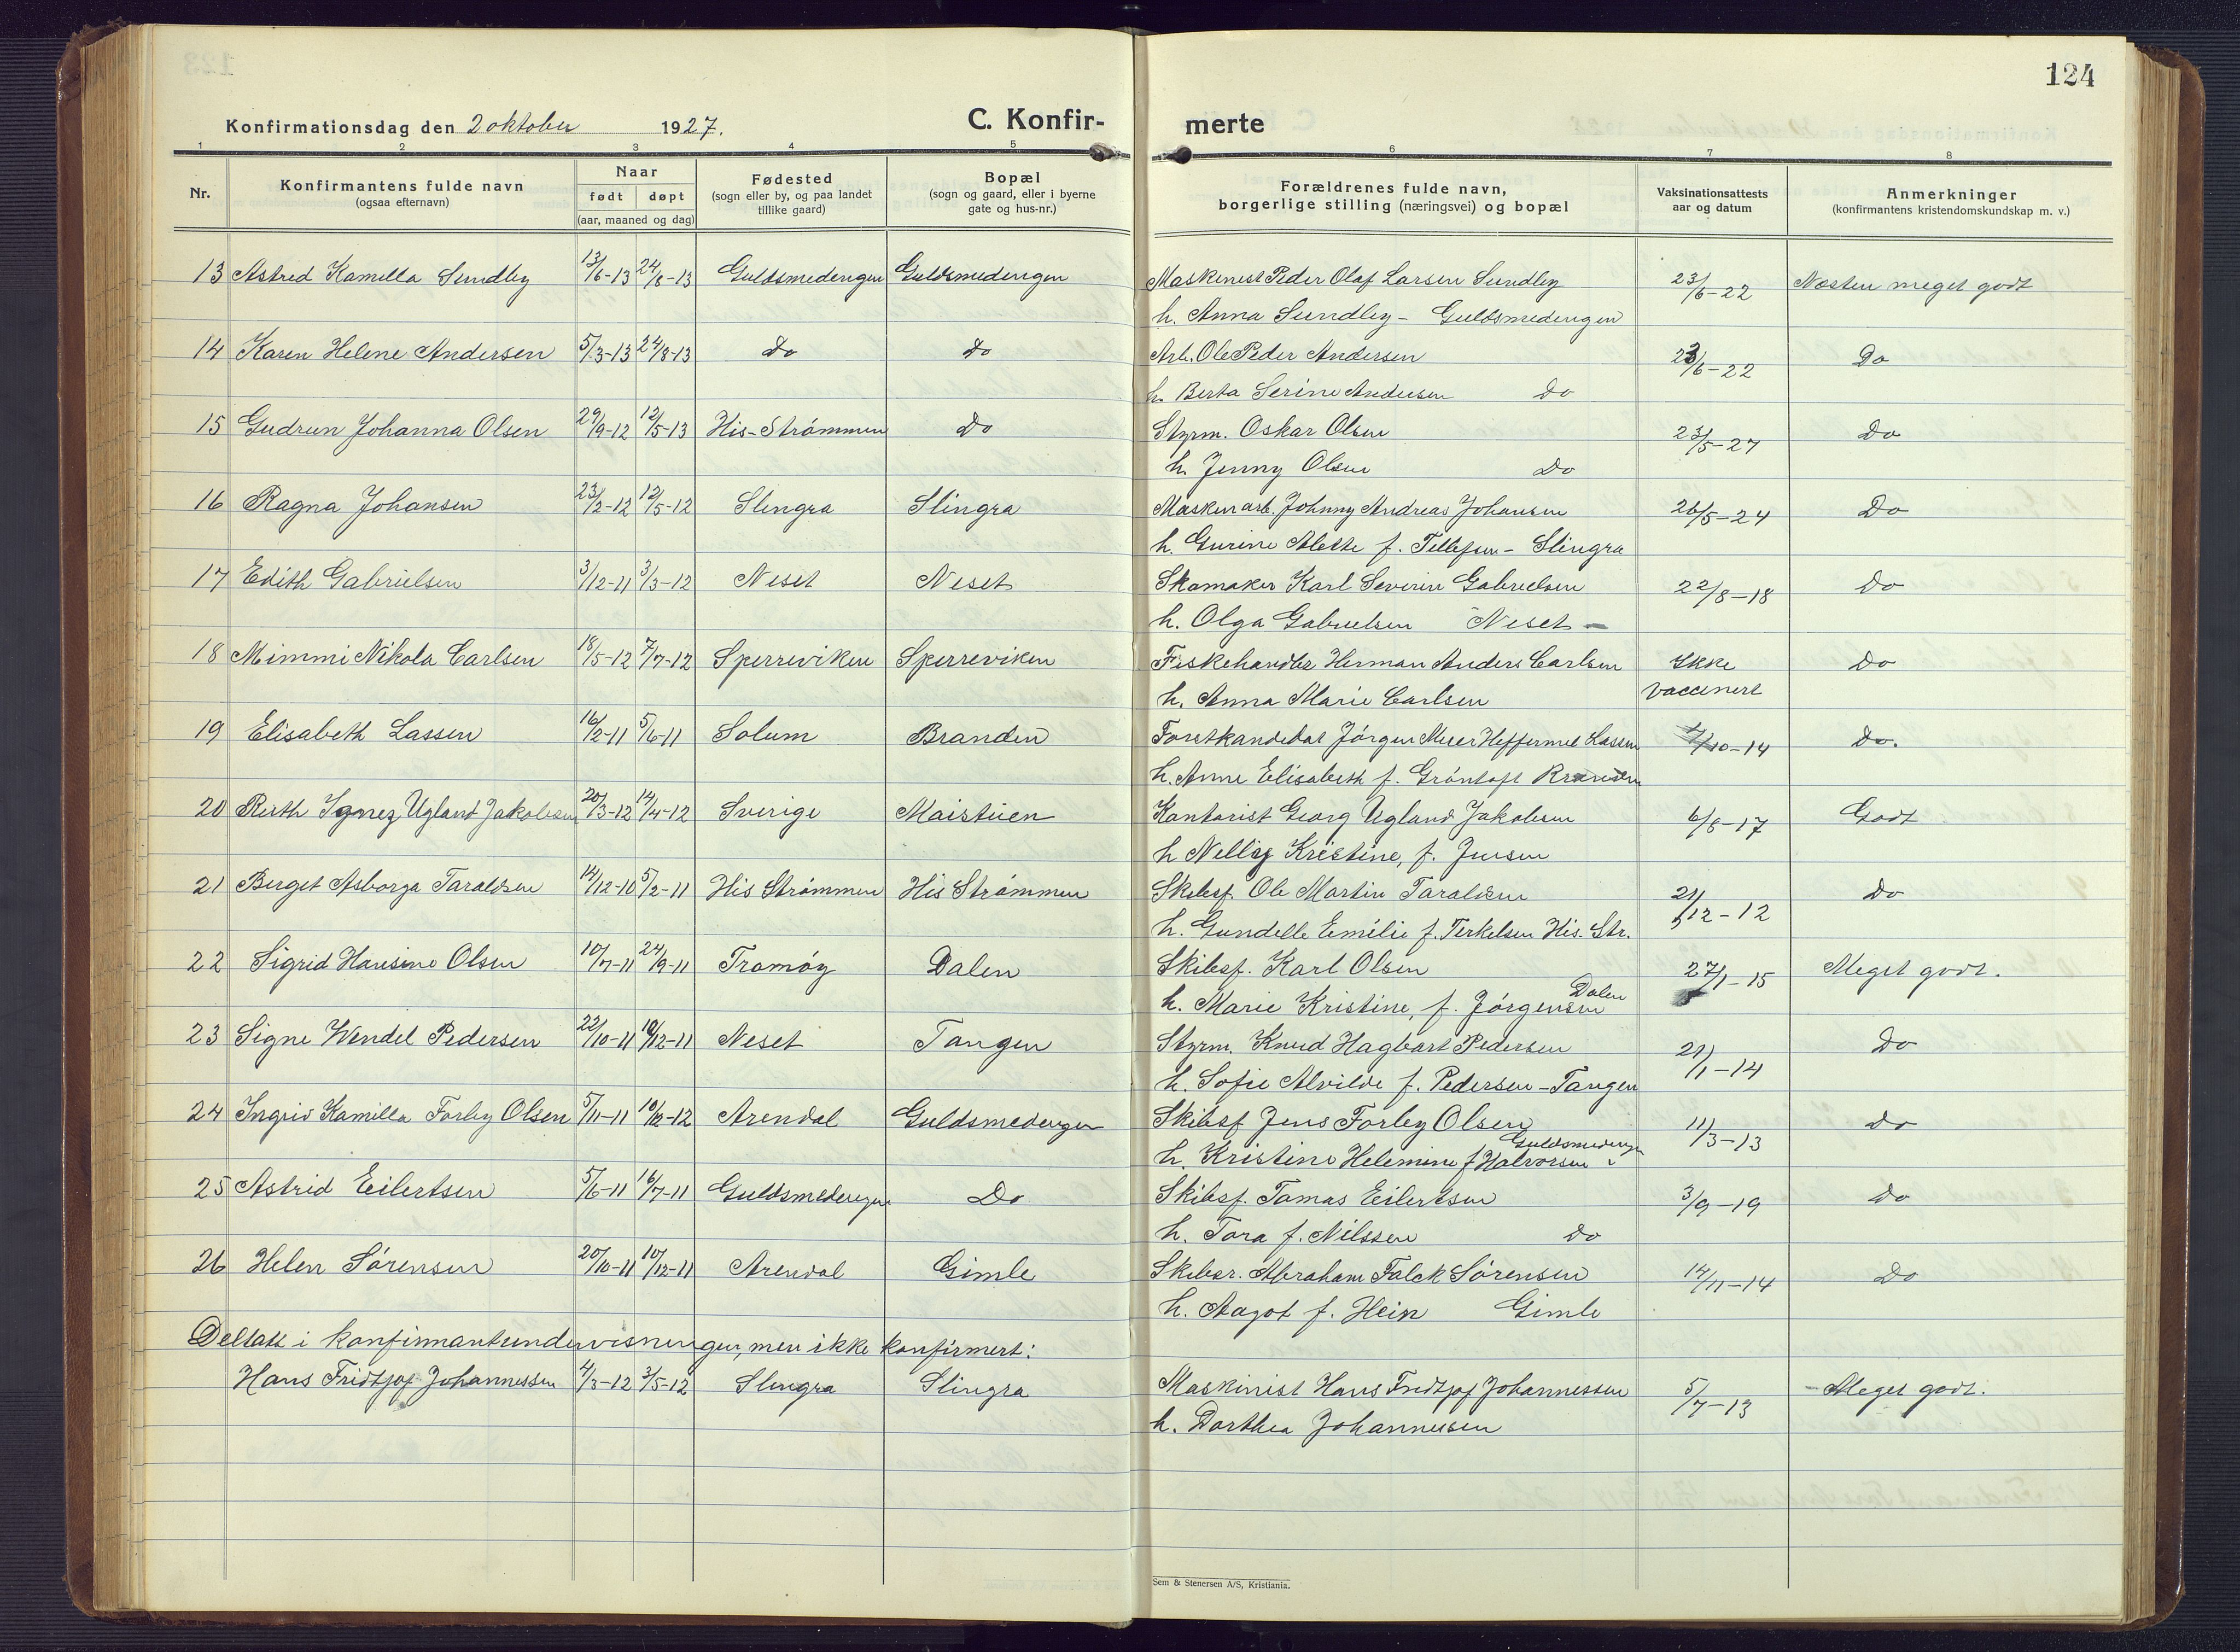 124
Konfirmationsdag den 2 oktober 1927.
C. Konfir-
merte
1 2 3 4 5 6 7 8
Nr.
Konfirmantens fulde navn
(ogsaa efternavn)
Naar
født døpt
(aar, maaned og dag)
Fødested
(sogn eller by, og paa landet
tillike gaard)
Bopæl
(sogn og gaard, eller i byerne
gate og hus-nr.)
Forældrenes fulde navn,
borgerlige stilling (næringsvei) og bopæl
Vaksinationsattests
aar og datum
Anmerkninger
(konfirmantens kristendomskundskap m. v.)
13 Astred Kamilla Sundby 13/6-13 24/8-13 Guldsmedengen Guldsmedengen Maskenist Peder Olaf Larsen Sundby 23/6-22 Næsten meget godt
h. Anna Sundby - Guldsmedengen
14 Karen Helene Andersen 5/3-13 24/8-13 Do Do Arb. Ole Peder Andersen 23/6-22 Do
h. Berta Serine Andersen Do
15 Gudrun Johanna Olsen 29/9-12 12/5-13 His-Strömmen Do Styrm. Oskar Olsen 23/5-27 Do
h. Jenny Olsen Do
16 Ragna Johansen 23/2-12 12/5-12 Slingra Slingra Maskinarb. Johnny Andreas Johansen 26/5-24 Do
h. Gurine Alette f. Tellefsen - Slingra
17 Edith Gabrielsen 3/12-11 3/3-12 Neset Neset Skomaker Karl Severin Gabrielsen 22/8-18 Do
h. Olga Gabrielsen Neset -
18 Mimmi Nikola Carlsen 18/5-12 7/7-12 Sperreviken Sperreviken Fiskehandler Herman Anders Carlsen Ikke Do
h. Anna Marie Carlsen vaccinert
19 Elisabeth Lassen 16/2-11 5/6-11 Solum Branden Forstkandidat Jörgen Heffermel Lassen /10-14 Do.
h. Anne Elisabeth f. Gröntoft Branden
20 Ruth Ignez Ugland Jakobsen 20/3-12 14/4-12 Sverige Maistuen Kontorist Georg Ugland Jakobsen 6/8-17 Godt
h Nelly Kristine, f. Jensen
21 Berget Asborga Taraldsen 14/12-10 5/2-11 His Strömmen His Strömmen Skibsf. Ole Martin Taraldsen 21/12-12 Do
h. Gundelle Emilie f. Terkelsen His. Str.
22 Sigrid Hansine Olsen 10/7-11 24/9-11 Tromöy Dalen Skibsf. Karl Olsen 27/1-15 Meget godt.
h. Marie Kristine, f. Jörgensen Dalen
23 Signe Wendel Pedersen 22/10-11 10/12-11 Neset Tangen Styrm. Knud Hagbart Pedersen 21/1-14 Do
h. Sofie Alvilde f. Pedersen - Tangen
24 Ingrid Kamilla Forby Olsen 5/11-11 10/12-12 Arendal Guldsmedengen Skibsf Jens Forby Olsen 11/3-13 do
h. Kristine Helemine f Halvorsen Guldsmedengen
25 Astrid Eilertsen 5/6-11 16/7-11 Guldsmedengen Do Skibsf. Tomas Eilertsen 3/9-19 do
h. Tora f. Nilssen do
26 Helen Sörensen 20/10-11 10/12-11 Arendal Gimle Skibsr. Abraham Falck Sörensen 14/11-14 Do
h. Aagot f. Hein Gimle
Deltatt i konfirmantundervisningen, men ikke konfirmert:
Hans Fridtjof Johannessen 4/3-12 3/5-12 Slingra Slingra Maskinist Hans Fridtjof Johannessen 5/7-13 Meget godt.
h. Dorthea Johannessen
Sem & Stenersen A/S, Kristiania.